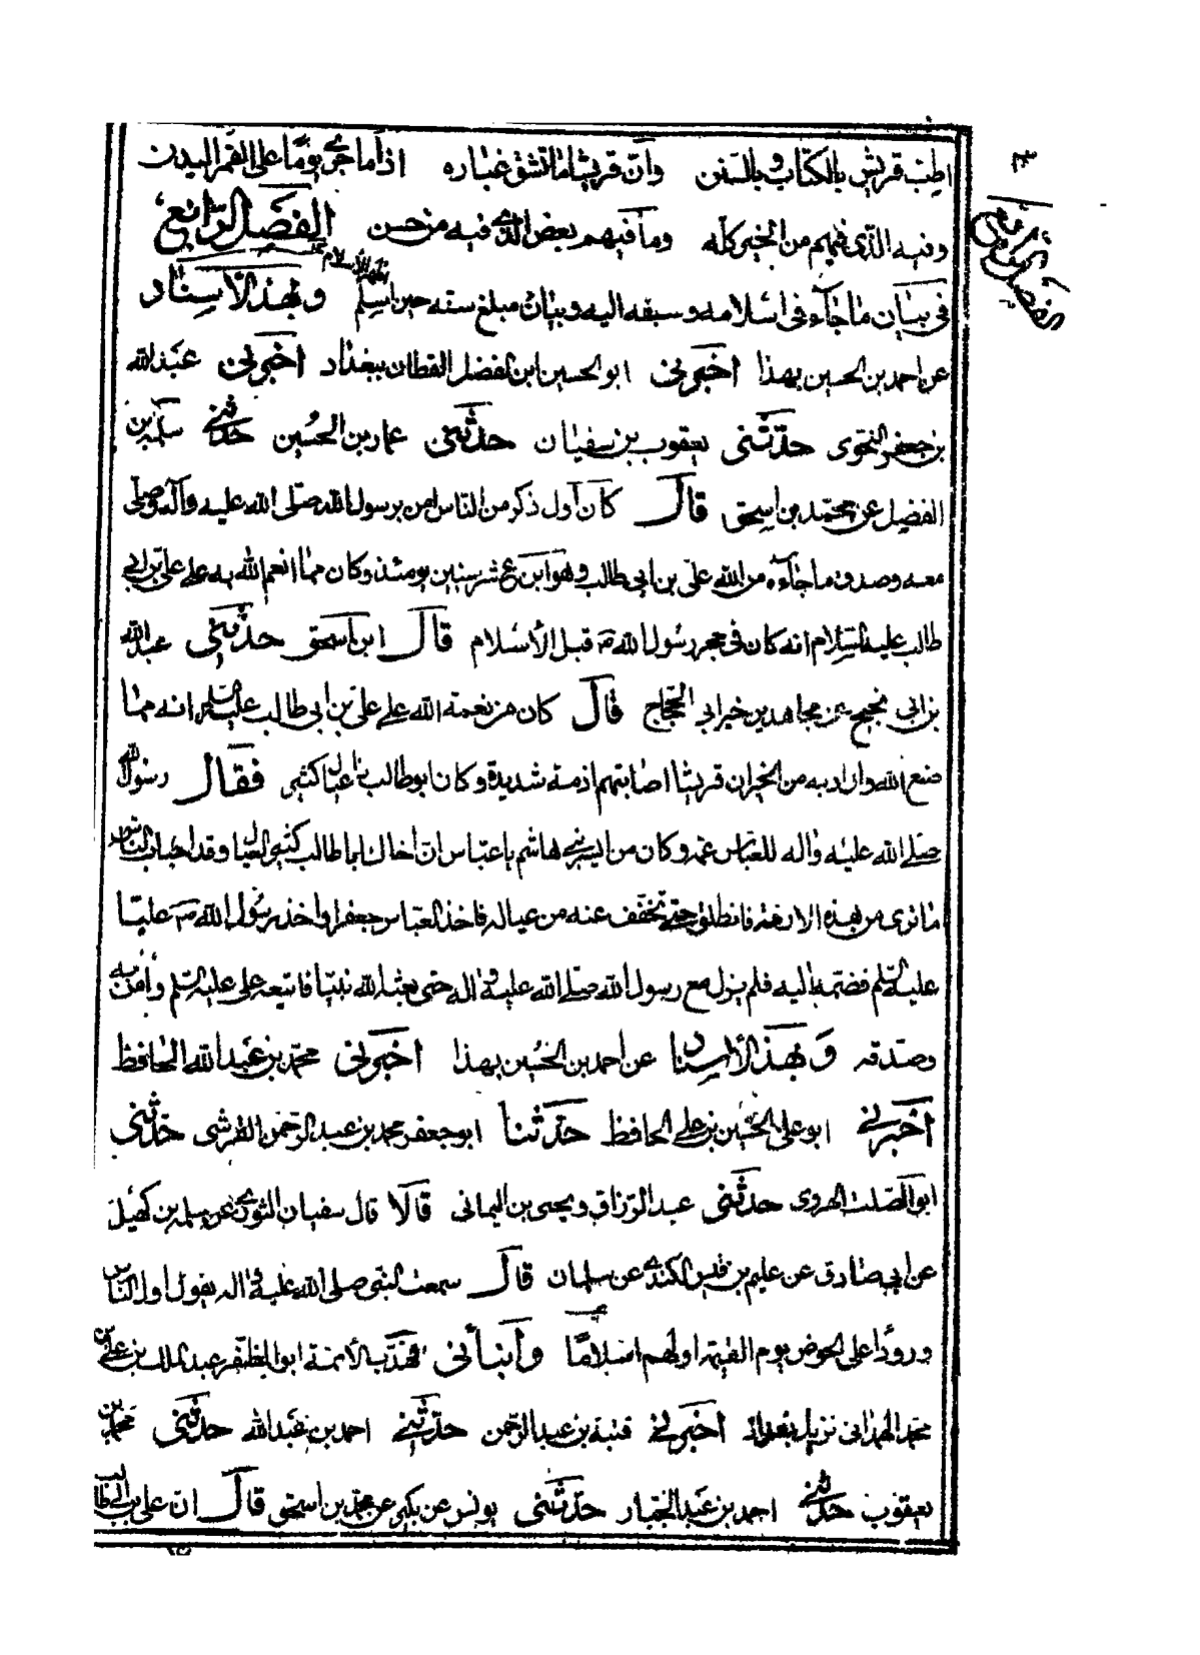 اطب قريش بالكتاب وبالسنن وان قريشا ما تشق غباره اذا ما جرى يوما على الضمر البدن
وفيه الذى فيهم من الخير كله وما فيهم بعض الذى فيه من حسن الفصل الرابع
فى بيان ما جآء فى اسلامه وسبقه اليه وبيان مبلغ سنه حين اسلم وبهذا الأسناد
عن احمد بن الحسين بهذا اخبرنى ابو الحسين ابن الفضل القطان ببغداد اخبرنى عبد الله
بن جعفر النحوى حدثنى يعقوب بن سفيان حدثنى عمار بن الحسين حدثنى سلمة بن
الفضيل عن محمد بن اسحق قال كان اول ذكر من الناس امن برسول الله صلى الله عليه وآله وصلى
معه وصدق ما جاءه من الله على بن ابى طالب وهو ابن عشر سنين يومئذ وكان مما انعم الله به على على بن ابى
طالب عليه السلام انه كان فى حجر رسول الله ص قبل الأسلام قال ابن اسحق حدثنى عبد الله
بن ابى نجيح عن مجاهد بن خير ابى الحجاج قال كان من نعمة الله على على بن ابى طالب عليه السلام انه مما
صنع الله واراد به من الخير ان قريشا اصابتهم ازمة شديدة وكان ابو طالب ذا عيال كثير فقال رسول الله
صلى الله عليه واله للعباس عمه وكان من ايسر بنى هاشم يا عباس ان اخاك ابا طالب كثير العيال وقد اصاب الناس
ما ترى من هذه الازمة فانطلق حتى نخفف عنه من عياله فاخذ العباس جعفرا واخذ رسول الله ص عليا
عليه السلم فضمه اليه فلم يزل مع رسول الله صلى الله عليه واله حتى بعثه الله نبيا فاتبعه على عليه السلم وامن به
وصدقه وبهذا الأسناد عن احمد بن الحسين بهذا اخبرنى محمد بن عبد الله الحافظ
اخبرنى ابو على الحسين بن على الحافظ حدثنا ابو جعفر محمد بن عبد الرحمن القرشى حدثنى
ابو الصلت الهروى حدثنى عبد الرزاق ويحيى بن اليمانى قالا قال سفيان الثورى عن سلمه بن كهيل
عن ابى صادق عن عليم بن قيس الكندى عن سلمان قال سمعت النبى صلى الله عليه واله يقول اول الناس
ورودا على الحوض يوم القيمة اولهم اسلاما وأنبأنى مهذب الأئمة ابو المظفر عبد الملك بن على بن
محمد الهمدانى نزيل بغداد اخبرنى قتيبة بن عبد الرحمن حدثنى احمد بن عبد الله حدثنى محمد بن
يعقوب حدثنى احمد بن عبد الجبار حدثنى يونس عن بكير عن محمد بن اسحق قال ان على بن ابى طالب
الفصل الرابع